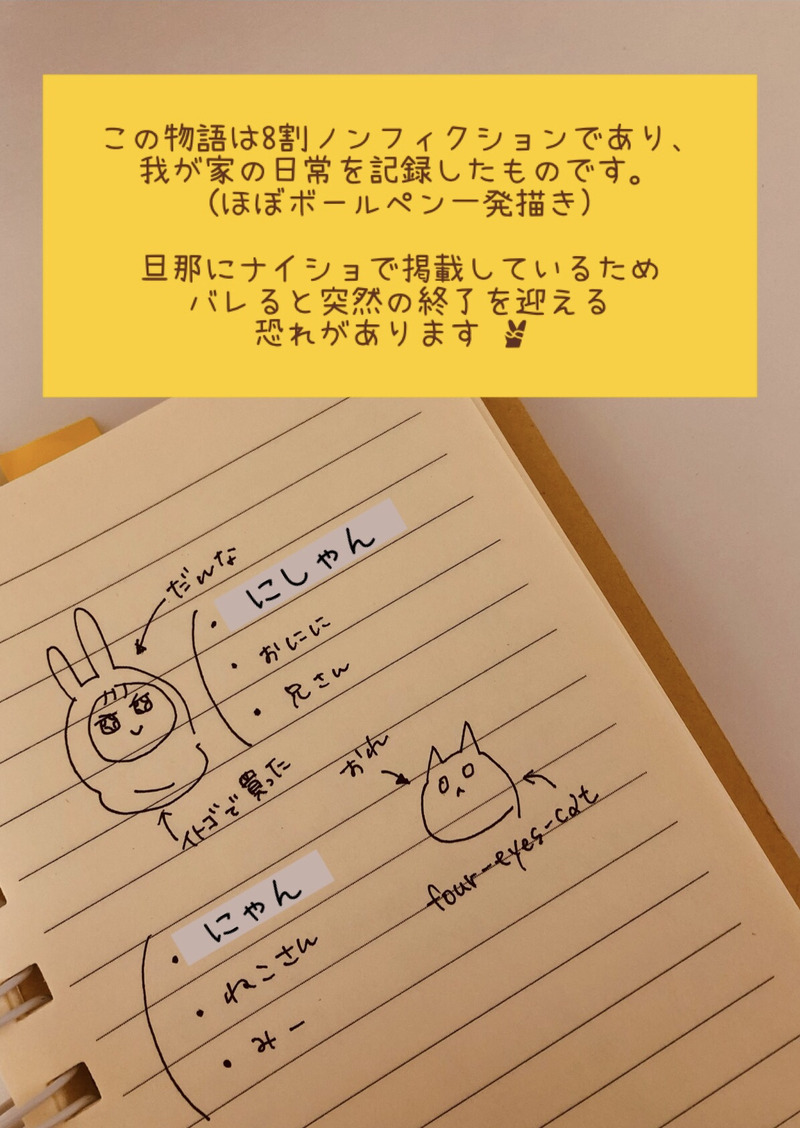 この物語は8割ノンフィクションであり、
我が家の日常を記録したものです。
(ほぼボールペン一発描き)
旦那にナイショで掲載しているため
バレると突然の終了を迎える
恐れがあります ✌
だんな
・にしゃん
・おにに
・兄さん
イトゴで買った
おれ
four-eyes-cat
・にゃん
・ねこさん
・みー